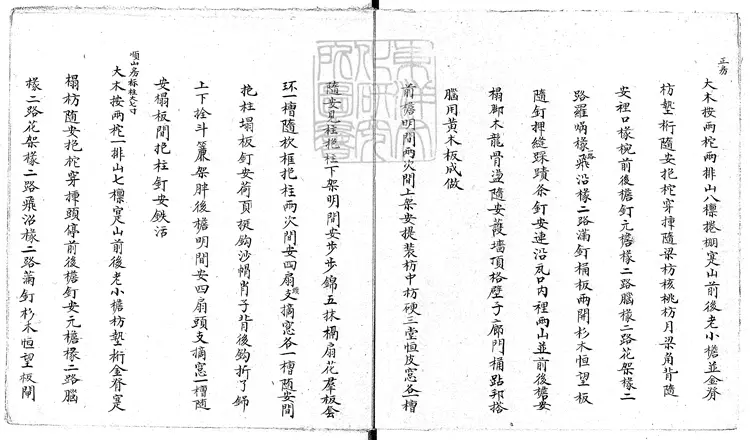 正房
大木按兩柁兩排山八檁捲棚寔山前後老小檐並金脊
枋墊桁隨安抱柁穿揷隨梁枋核桃枋月梁角背隨
安裡口椽椀前後檐釘元檐椽二路腦椽二路花架椽二
路羅鍋椽一路飛沿椽二路滿釘榻板兩鬧杉木恒望板
隨釘押縫踩蹟条釘安連沿瓦口内裡兩山並前後檐安
榻脚木龍骨邊隨安護墻頂格壁子廊門桶跕邦搭
腦用黄木板成做
前檐明間兩次間上架安提裝枋中枋硬三堂恒皮窓各一槽
隨安瓜柱抱柱下架明間安步步錦五抹槅扇花羣板叄
环一槽隨坎框抱柱兩次間安四扇支摘窓各一槽隨安間
抱柱塌板釘安荷頁挺鈎沙帽肖子背後鈎折了錦
上下拴斗簾架胖後檐明間安四扇頭支摘窓一槽隨
安榻板間抱柱釘安鉄活
順山房标柱丈寸
大木按兩柁一排山七檁寔山前後老小檐枋墊桁金脊寔
榻枋隨安抱柁穿揷頭停前後檐釘安元檐椽二路腦
椽二路花架椽二路飛沿椽二路滿釘杉木恒望板鬧